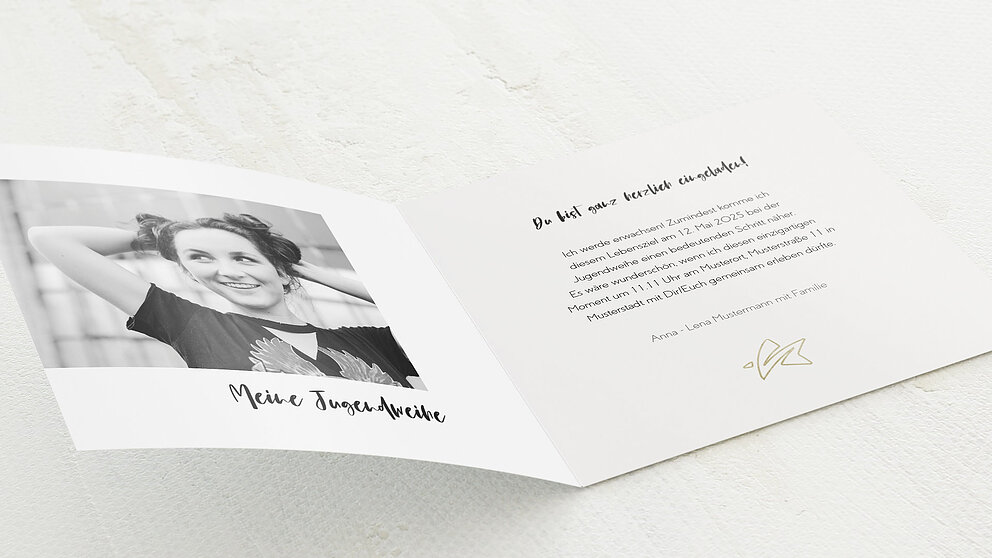 Meine Jugendweihe
Du bist ganz herzlich eingeladen!
Ich werde erwachsen! Zumindest komme ich
diesem Lebensziel am 12. Mai 2025 bei der
Jugendweihe einen bedeutenden Schritt näher.
Es wäre wunderschön, wenn ich diesen einzigartigen
Moment um 11.11 Uhr am Musterort, Musterstraße 11 in
Musterstadt mit Dir/Euch gemeinsam erleben dürfte.
Anna - Lena Mustermann mit Familie